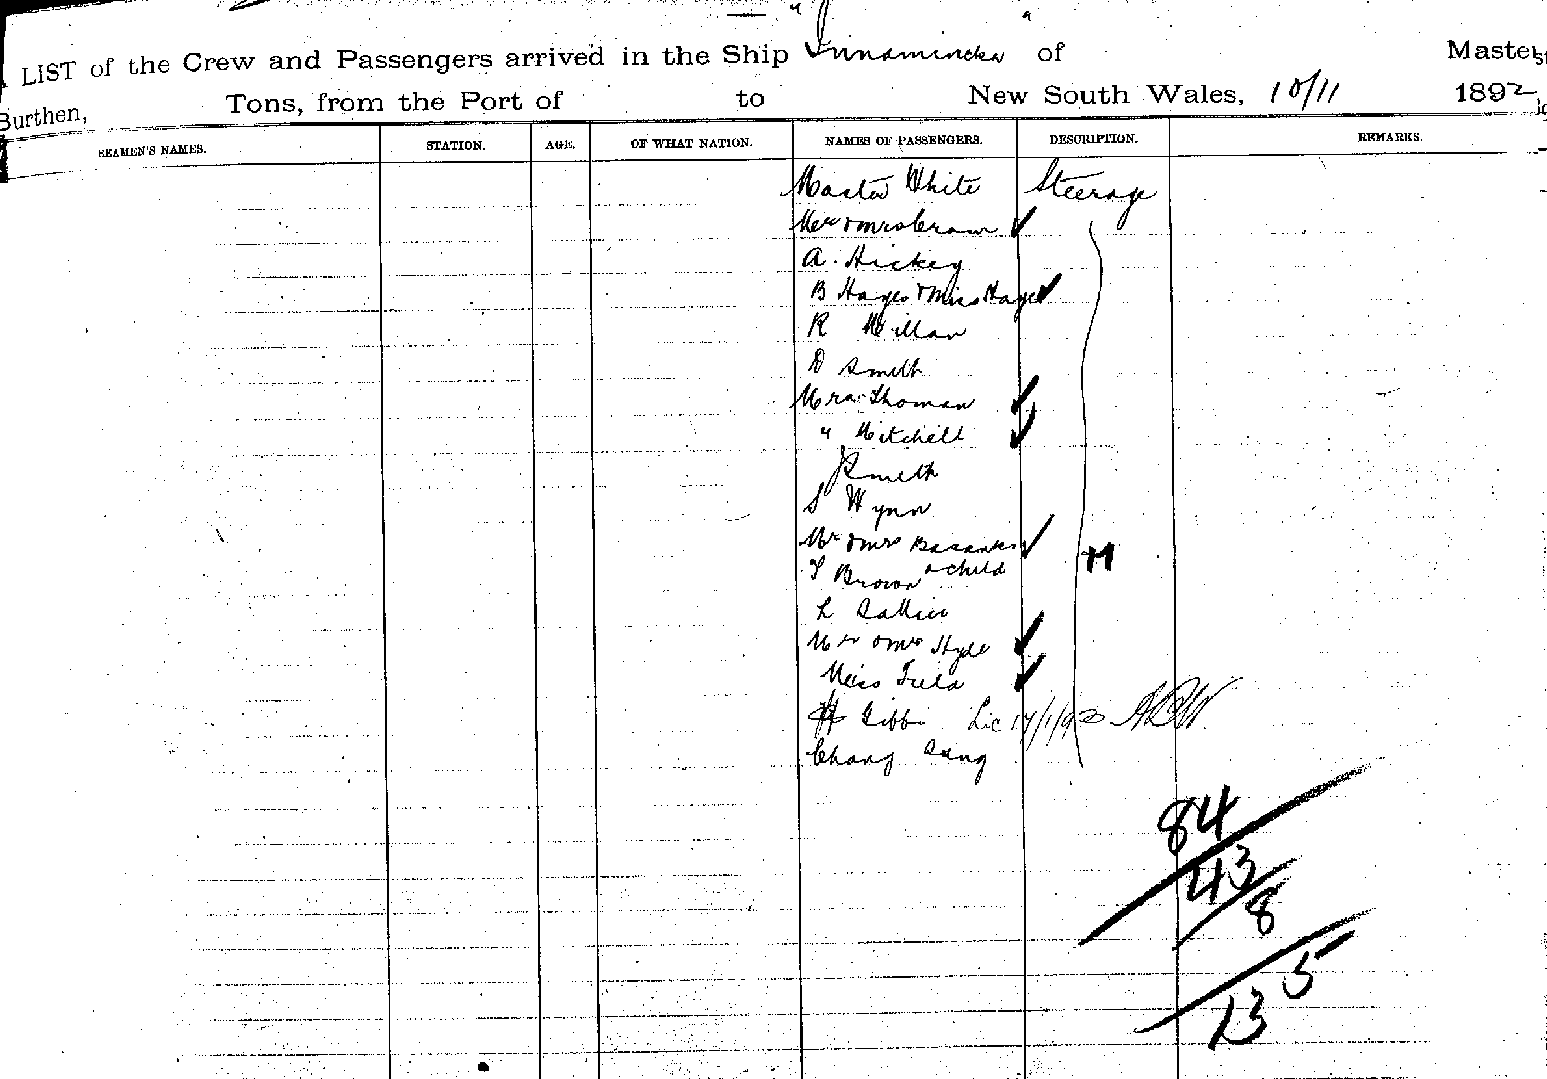 LIST of the Crew and Passengers arrived in the Ship "Innamincka" of Master
Burthen, Tons, from the Port of to New South Wales, 10/11 1892
SEAMEN'S NAMES. STATION. AGE. OF WHAT NATION. NAMES OF PASSENGERS. DESCRIPTION. REMARKS.
Master White Steerage
Mr & Mrs Cram ✓
A. Hickey
B Hayes & Miss Hayes ✓
R Millan
D Smith
Mrs Thoman ✓
" Mitchell ✓
J Smith
S Wynn
Mr & Mrs ✓
& Child
T Brown
L
Mr & Mrs Hyde ✓
Miss ✓
H Gibb Lic 17/1/9
Chang Sang
84
43
8
135